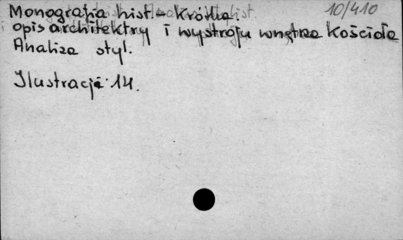 Monografia hist. - Krótka 10/410
opis architektry i wystroju wnętrza Kościoła
Analiza styl.
Ilustracji 14.